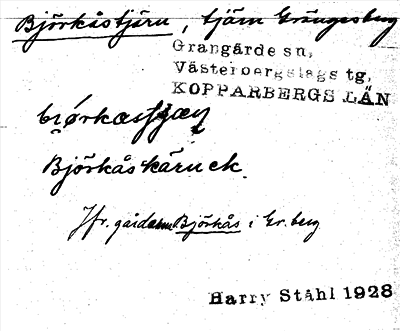 Björkåstjärn, tjärn Grängesberg
Grangärde sn,
Västerbergslags tg,
KOPPARBERGS LÄN
Björkåskärnck.
Jfr. gården Björkås i Gr. berg
Harry Ståhl 1928